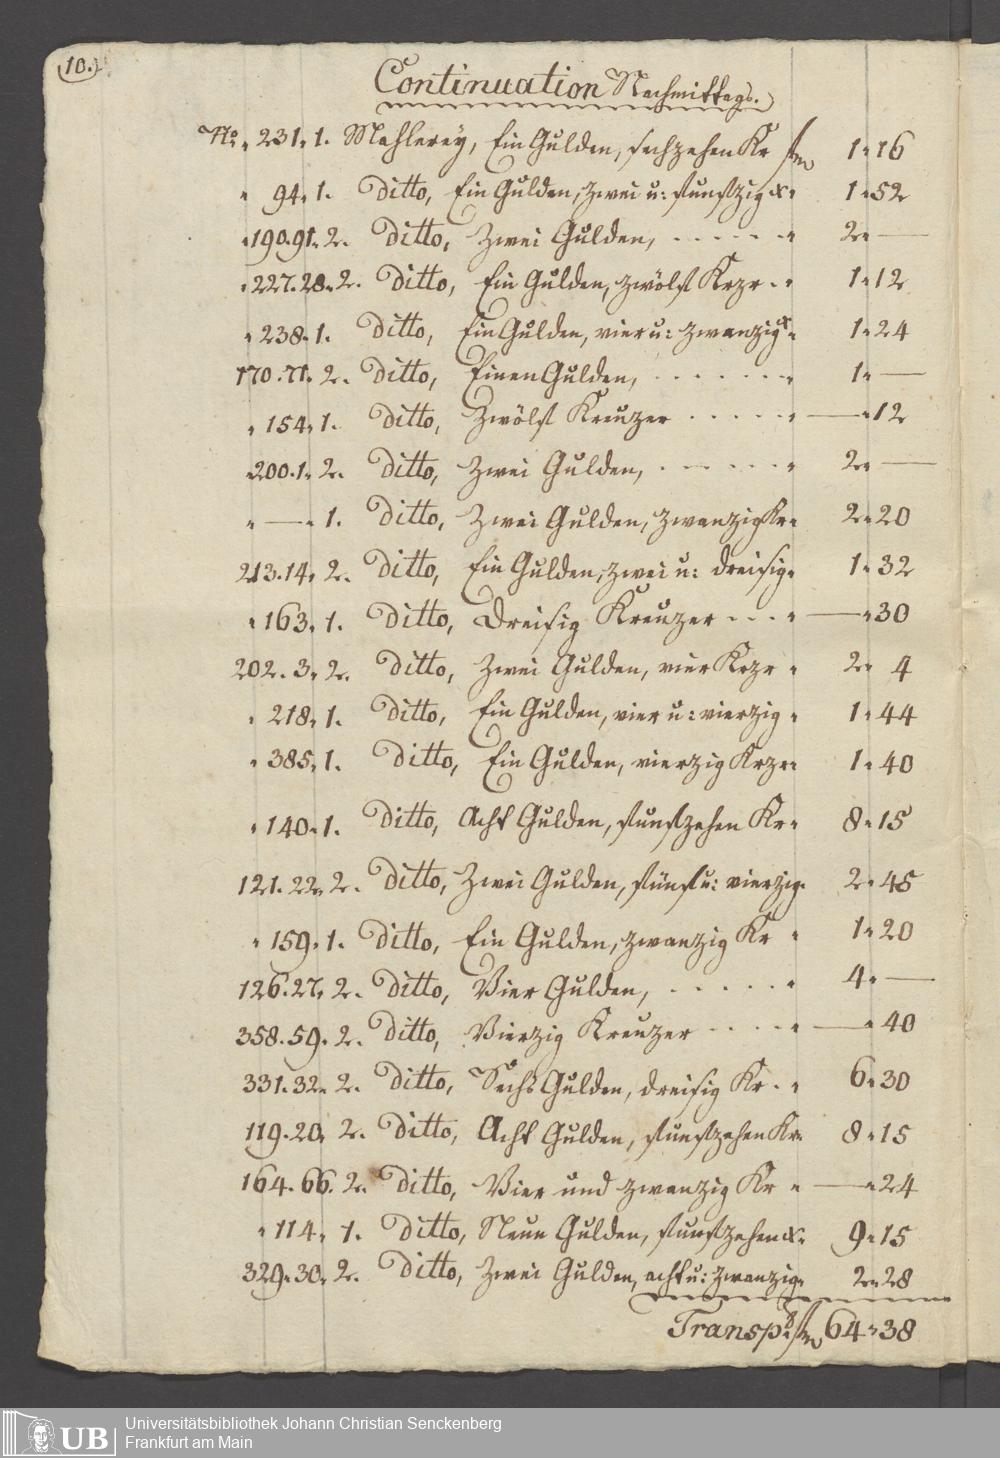 10.
Continuation Nachmittags.
No. 231. 1. Mahlerey, Ein Gulden, sechzehen Kr 1 " 16
" 94. 1. Ditto, Ein Gulden, zwei u: funfzig x 1 " 52
" 190.91. 2. Ditto, Zwei Gulden, - - - - - - " 2 " —
" 227.28. 2. Ditto, Ein Gulden, zwölf Krzr - " 1 " 12
" 238. 1. Ditto, Ein Gulden, vier u: zwanzig x " 1 " 24
170.71. 2. Ditto, Einen Gulden, - - - - - - " 1 " —
" 154. 1. Ditto, Zwölf Kreuzer - - - - - " — " 12
" 200.1. 2. Ditto, Zwei Gulden, - - - - - - " 2 " —
" — " 1. Ditto, Zwei Gulden, zwanzig Kr " 2 " 20
213.14. 2. Ditto, Ein Gulden, zwei u: dreisig " 1 " 32
" 163. 1. Ditto, Dreisig Kreuzer - - - " — " 30
202.3. 2. Ditto, Zwei Gulden, vier Krzr " 2 " 4
" 218. 1. Ditto, Ein Gulden, vier u: vierzig " 1 " 44
" 385. 1. Ditto, Ein Gulden, vierzig Krzr " 1 " 40
" 140. 1. Ditto, Acht Gulden, funfzehen Kr " 8 " 15
121.22. 2. Ditto, Zwei Gulden, fünf u: vierzig " 2 " 45
" 159. 1. Ditto, Ein Gulden, zwanzig Kr " 1 " 20
126.27. 2. Ditto, Vier Gulden, - - - - - " 4 " —
358.59. 2. Ditto, Vierzig Kreuzer - - - - " — " 40
331.32. 2. Ditto, Sechs Gulden, dreisig Kr - " 6 " 30
119.20. 2. Ditto, Acht Gulden, funfzehen Kr " 8 " 15
164.66. 2. Ditto, Vier und zwanzig Kr " — " 24
" 114. 1. Ditto, Neun Gulden, funfzehen x " 9 " 15
329.30. 2. Ditto, Zwei Gulden, acht u: zwanzig " 2 " 28
Transp. 64 " 38
UB
Universitätsbibliothek Johann Christian Senckenberg
Frankfurt am Main